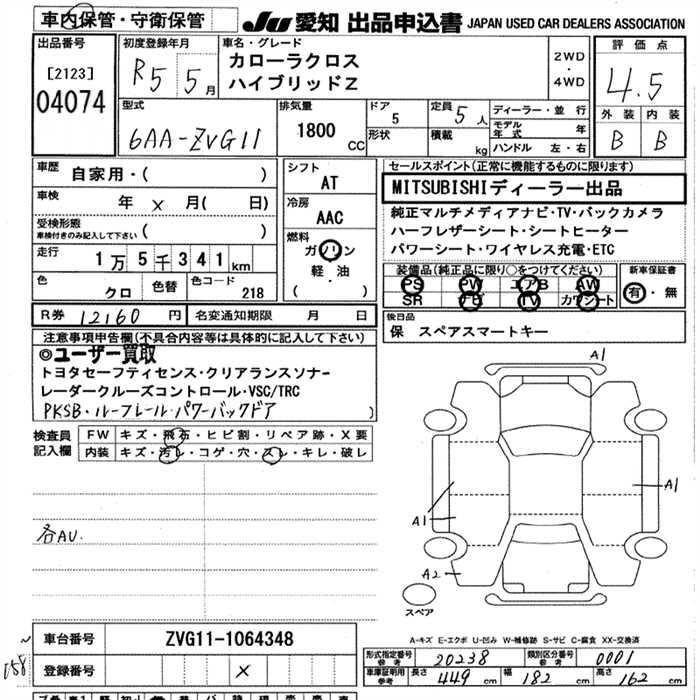 車内保管・守衛保管
JU 愛知 出品申込書 JAPAN USED CAR DEALERS ASSOCIATION
出品番号
[2123]
04074
初度登録年月
R5年5月
車名・グレード
カローラクロス
ハイブリッドZ
2WD
・
4WD
評価点
4.5
外装 内装
B B
型式
6AA-ZVG11
排気量
1800 CC
ドア
5
形状
定員
5人
積載
kg
ディーラー・並行
モデル年式 年
ハンドル 左・右
車歴
自家用・( )
車検
年 × 月( 日)
受検形態
車検付きのみ記入して下さい ( )
走行
1万5千341km
色
クロ
色替
色コード
218
シフト
AT
冷房
AAC
燃料
ガソリン
軽・油
( )
セールスポイント(正常に機能するものに限ります)
MITSUBISHIディーラー出品
純正マルチメディアナビ・TV・バックカメラ
ハーフレザーシート・シートヒーター
パワーシート・ワイヤレス充電・ETC
装備品(純正品に限り○をつけてください)
PS PW エアB AW
SR ナビ TV カワシート
新車保証書
有・無
R券 12160円
名変通知期限 月 日
後日品
保 スペアスマートキー
注意事項申告欄(不具合内容等は具体的に記入して下さい)
◎ユーザー買取
トヨタセーフティセンス・クリアランスソナー
レーダークルーズコントロール・VSC/TRC
PKSB・ルーフレール・パワーバックドア
検査員
記入欄
FW キズ・飛石・ヒビ割・リペア跡・X要
内装 キズ・汚レ・コゲ・穴・スレ・キレ・破レ
各AU.
A1
A1
A1
A2
スペア
A-キズ E-エクボ U-凹み W-補修跡 S-サビ C-腐食 XX-交換済
車台番号 ZVG11-1064348
登録番号 ×
~
058
形式指定番号
参考
20238
類別区分番号
参考
0001
車庫証明用
参考
長さ 449 cm 幅 182 cm 高さ 162 cm